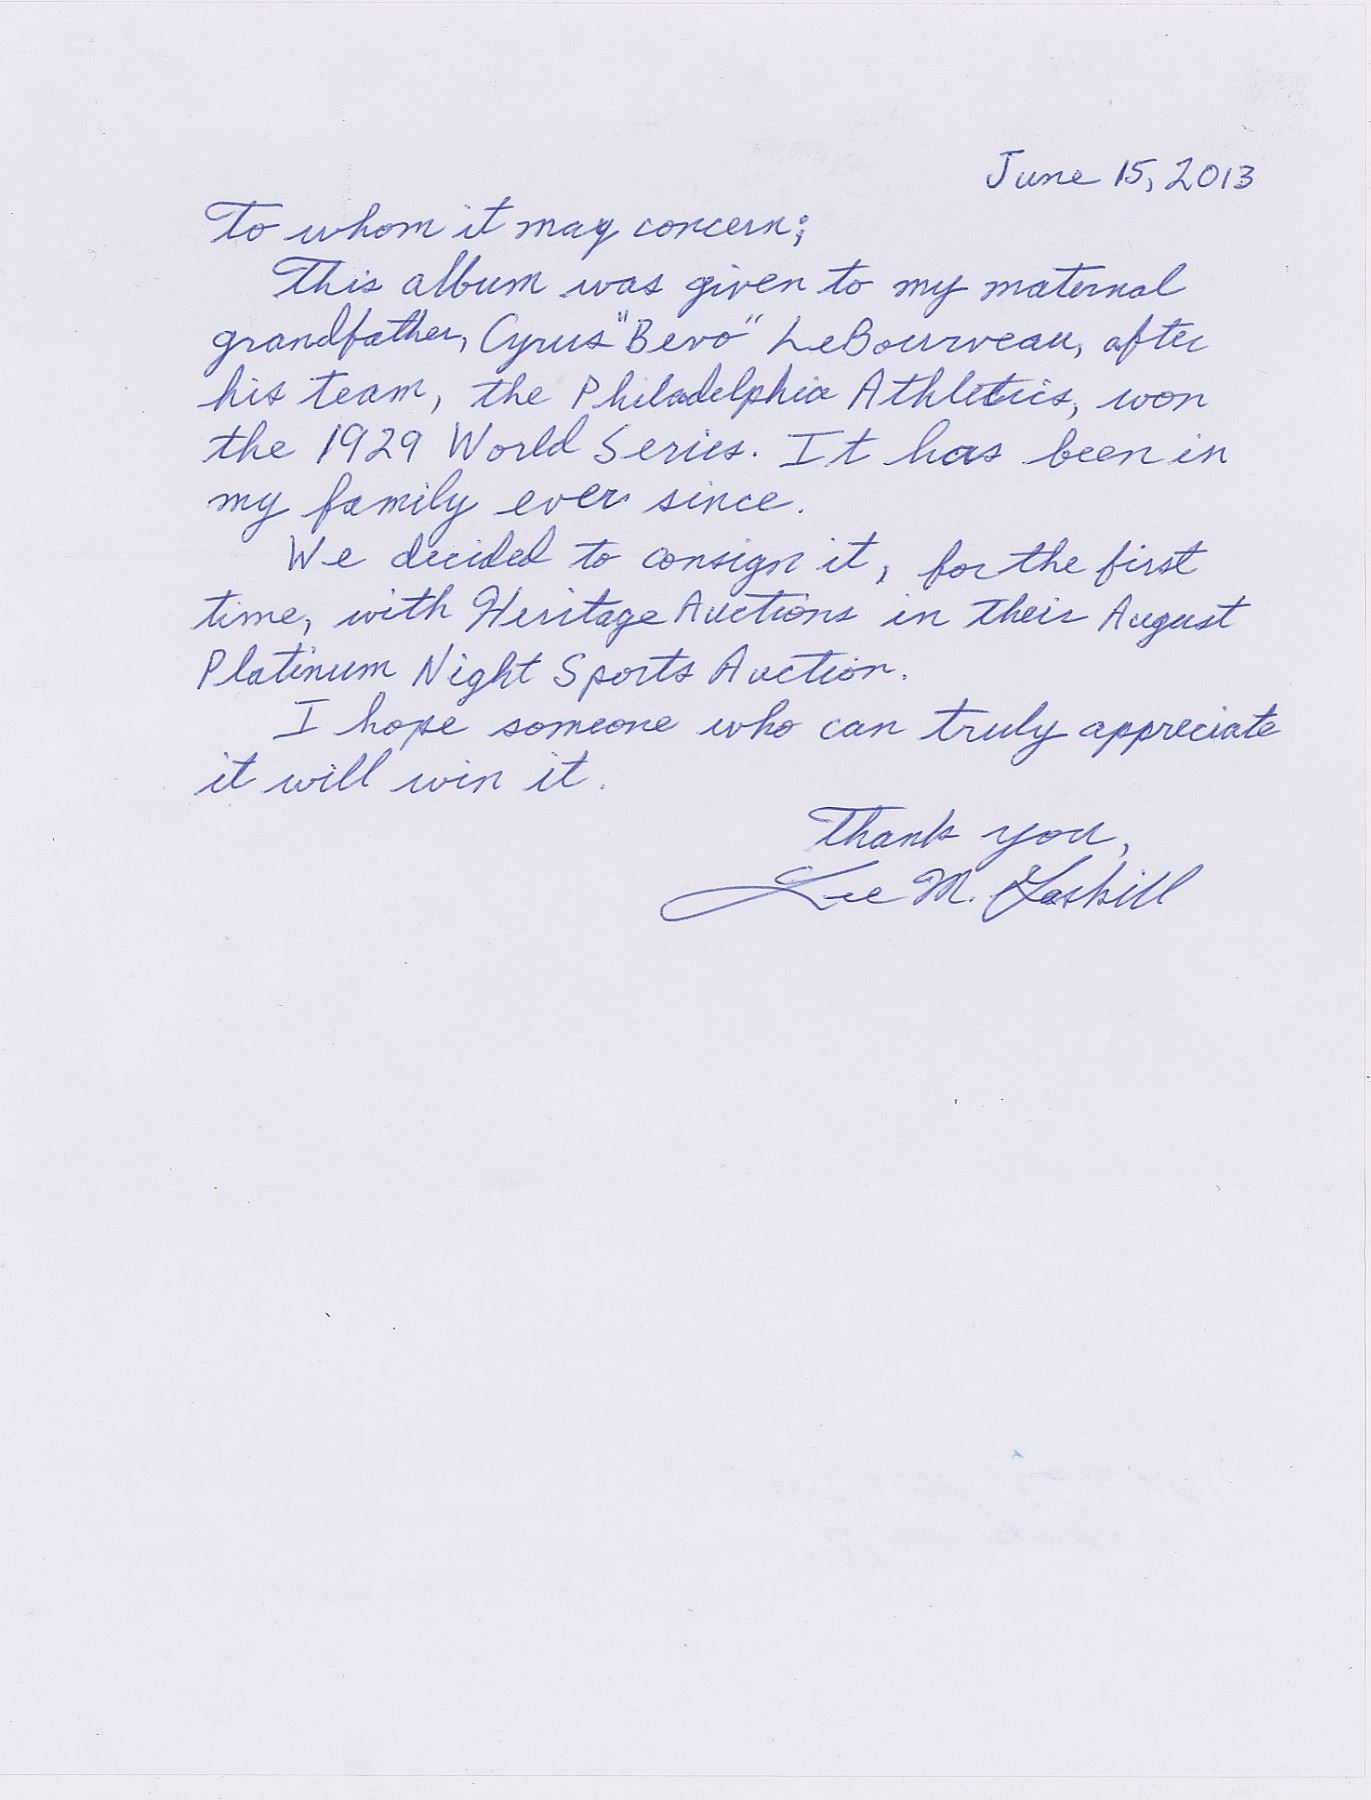 June 15, 2013
To whom it may concern;
This album was given to my maternal
grandfather, Cyrus "Bevo" LeBourveau, after
his team, the Philadelphia Athletics, won
the 1929 World Series. It has been in
my family ever since.
We decided to consign it, for the first
time, with Heritage Auctions in their August
Platinum Night Sports Auction.
I hope someone who can truly appreciate
it will win it.
Thank you,
Lee M. Gaskill